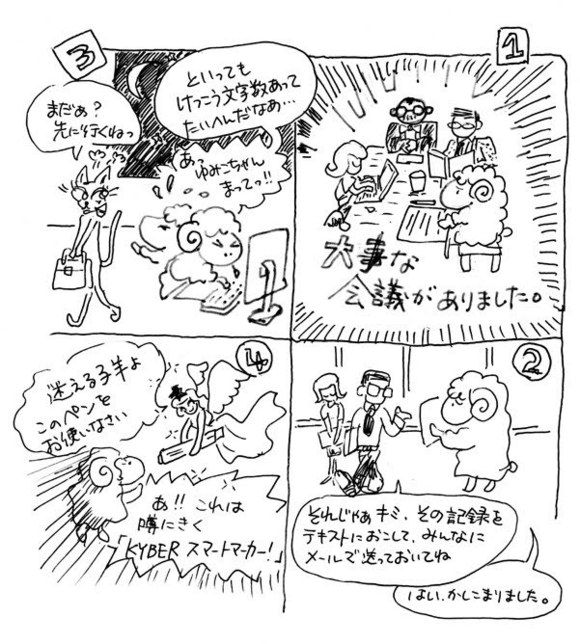 1
大事な
会議がありました。
2
それじゃぁ キミ、その記録を
テキストにおこして、みんなに
メールで送っておいてね
はい、かしこまりました。
3
といっても
けっこう文字数あって
たいへんだなあ…
まだぁ?
先に行くねっ
あっ
ゆみこちゃん
まってっ!!
4
迷える子羊よ
このペンを
お使いなさい
あ!! これは
噂にきく
「KYBER スマートマーカー!」